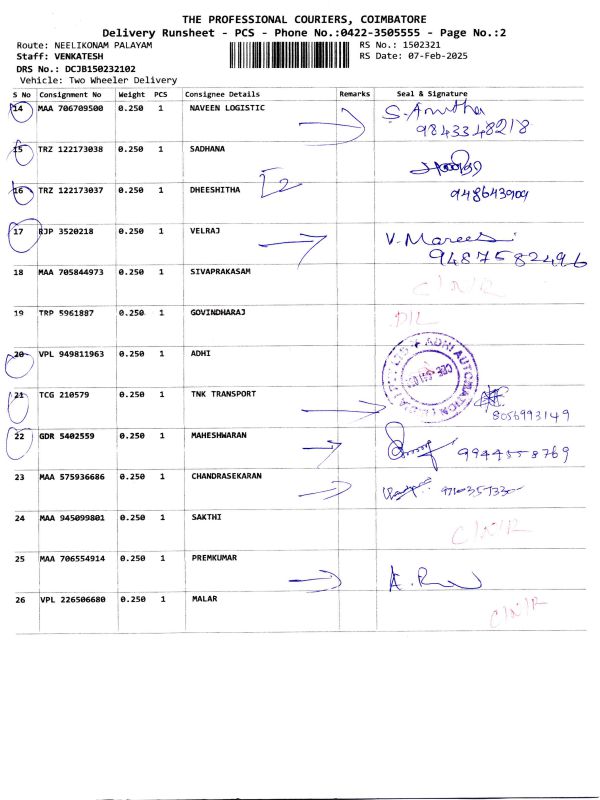 THE PROFESSIONAL COURIERS, COIMBATORE
Delivery Runsheet - PCS - Phone No.:0422-3505555 - Page No.:2
Route: NEELIKONAM PALAYAM
RS No.: 1502321
Staff: VENKATESH
RS Date: 07-Feb-2025
DRS No.: DCJB150232102
Vehicle: Two Wheeler Delivery
S No Consignment No Weight PCS Consignee Details Remarks Seal & Signature
14 MAA 706709500 0.250 1 NAVEEN LOGISTIC S. Anitha
9843348218
15 TRZ 122173038 0.250 1 SADHANA
16 TRZ 122173037 0.250 1 DHEESHITHA
17 BJP 3520218 0.250 1 VELRAJ
9487582496
18 MAA 705844973 0.250 1 SIVAPRAKASAM C/N/R
19 TRP 5961887 0.250 1 GOVINDHARAJ
20 VPL 949811963 0.250 1 ADHI ADHI AUTOMATION
21 TCG 210579 0.250 1 TNK TRANSPORT
8056993149
22 GDR 5402559 0.250 1 MAHESHWARAN 9944558769
23 MAA 575936686 0.250 1 CHANDRASEKARAN
24 MAA 945099801 0.250 1 SAKTHI C/N/R
25 MAA 706554914 0.250 1 PREMKUMAR
26 VPL 226506680 0.250 1 MALAR C/N/R